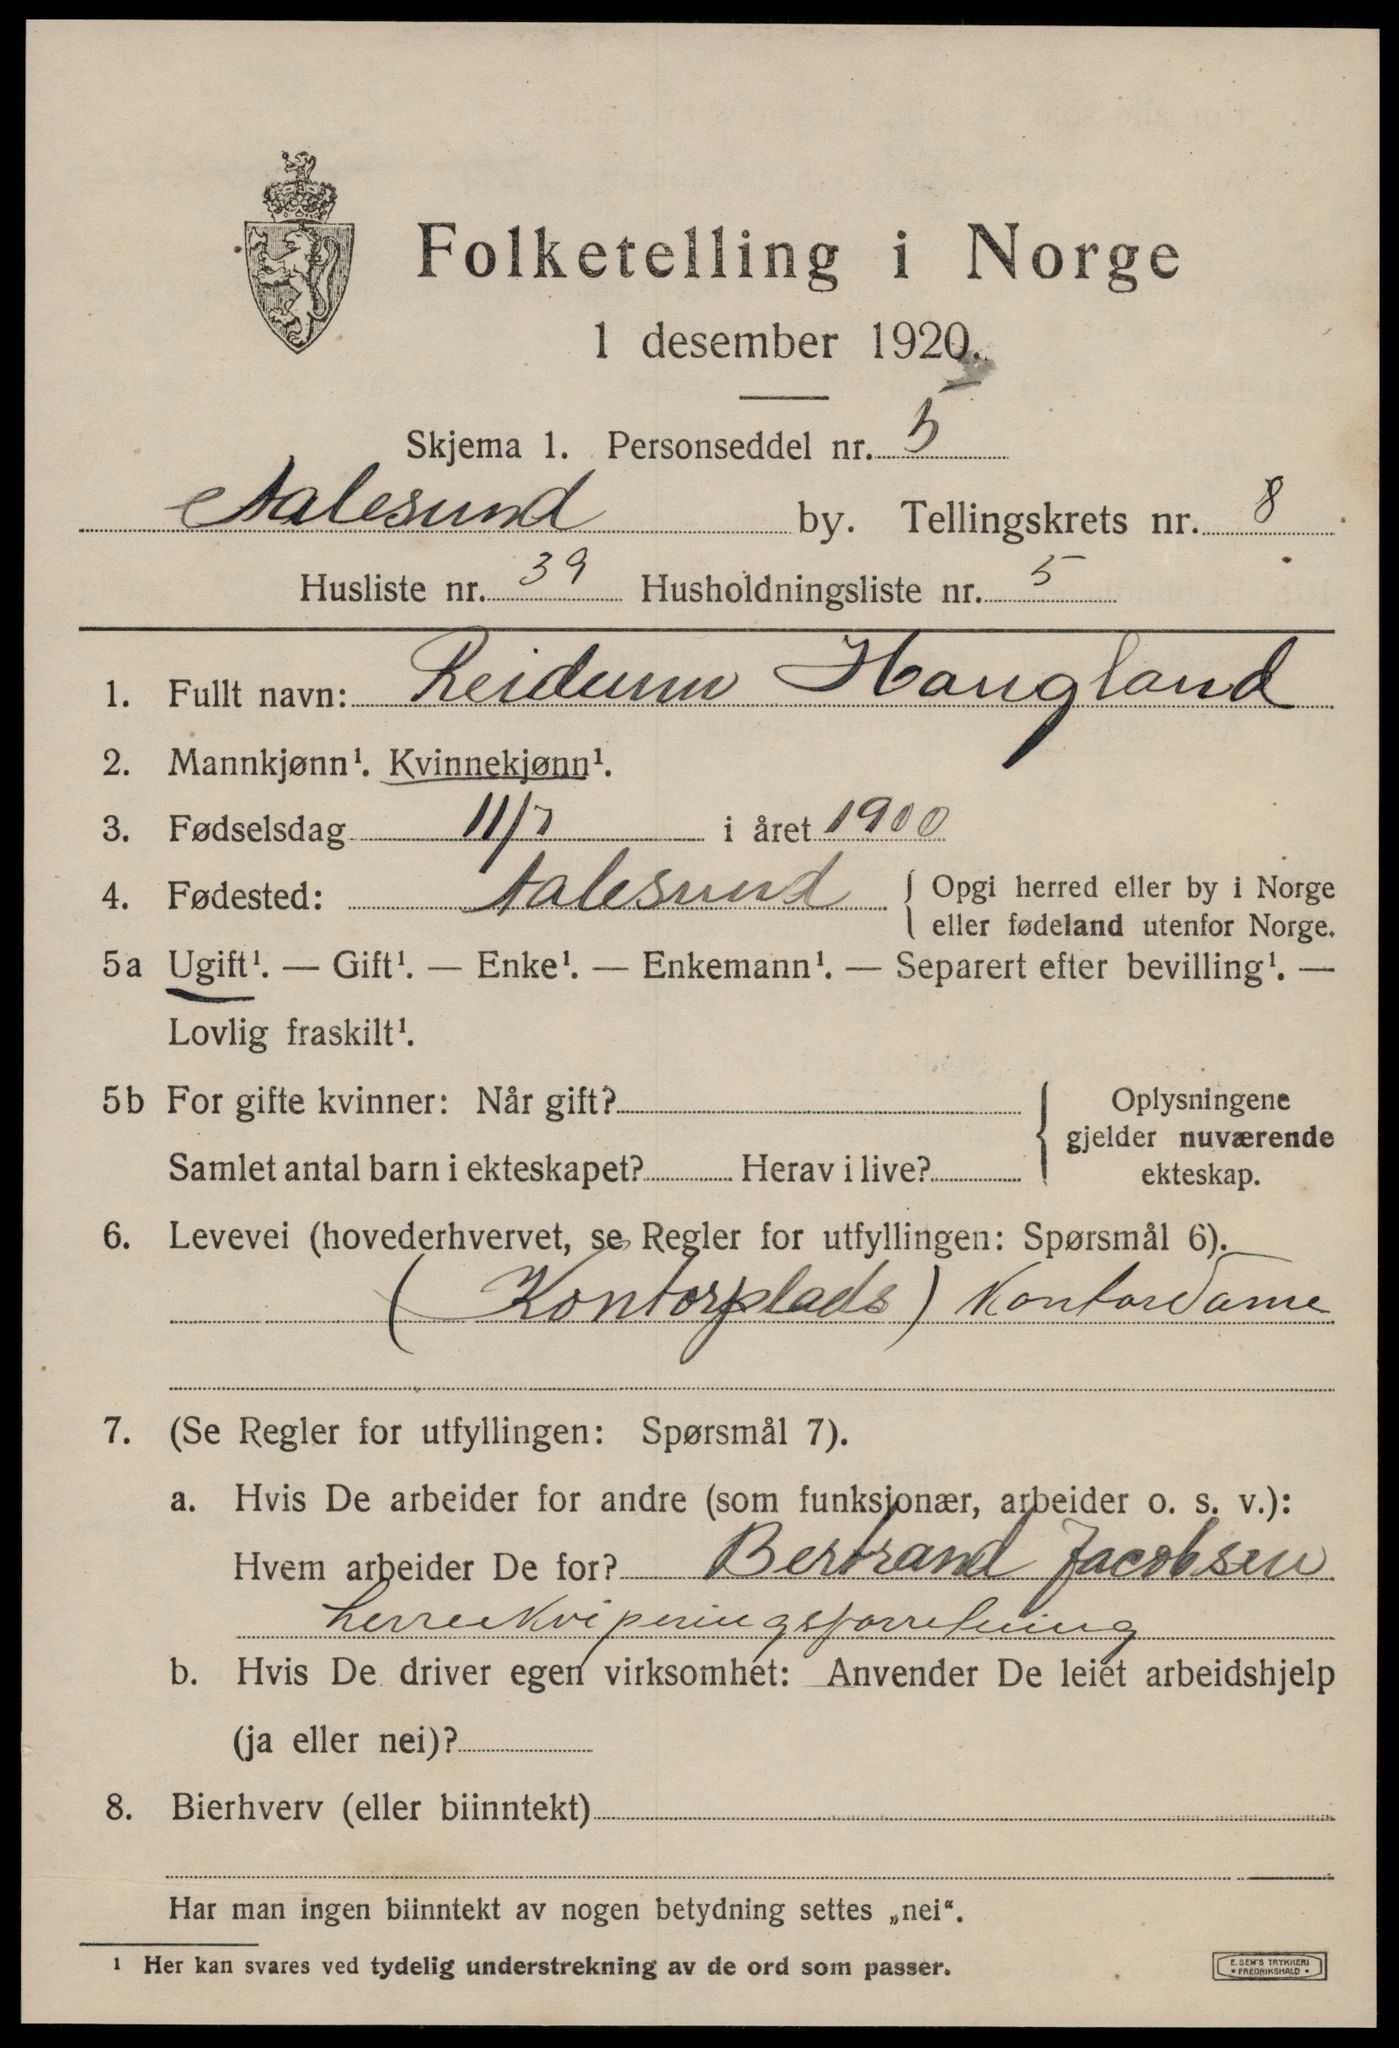 Folketelling i Norge
1 desember 1920.
Skjema 1. Personseddel nr. 5
Aalesund by. Tellingskrets nr. 8
Husliste nr. 39 Husholdningsliste nr. 5
1. Fullt navn: Reidunn Haugland
2. Mannkjønn¹. Kvinnekjønn¹.
3. Fødselsdag 11/7 i året 1900
4. Fødested: Aalesund { Opgi herred eller by i Norge
eller fødeland utenfor Norge.
5a Ugift¹. — Gift¹. — Enke¹. — Enkemann¹. — Separert efter bevilling¹. —
Lovlig fraskilt¹.
5b For gifte kvinner: Når gift? { Oplysningene
gjelder nuværende
Samlet antal barn i ekteskapet? Herav i live? ekteskap.
6. Levevei (hovederhvervet, se Regler for utfyllingen: Spørsmål 6).
(Kontorplads) Kontordame
7. (Se Regler for utfyllingen: Spørsmål 7).
a. Hvis De arbeider for andre (som funksjonær, arbeider o. s. v.):
Hvem arbeider De for? Bertrand Jacobsen
herreekviperingsforretning
b. Hvis De driver egen virksomhet: Anvender De leiet arbeidshjelp
(ja eller nei)?
8. Bierhverv (eller biinntekt)
Har man ingen biinntekt av nogen betydning settes „nei“.
¹ Her kan svares ved tydelig understrekning av de ord som passer.
E. SEM'S TRYKKERI
• FREDRIKSHALD •